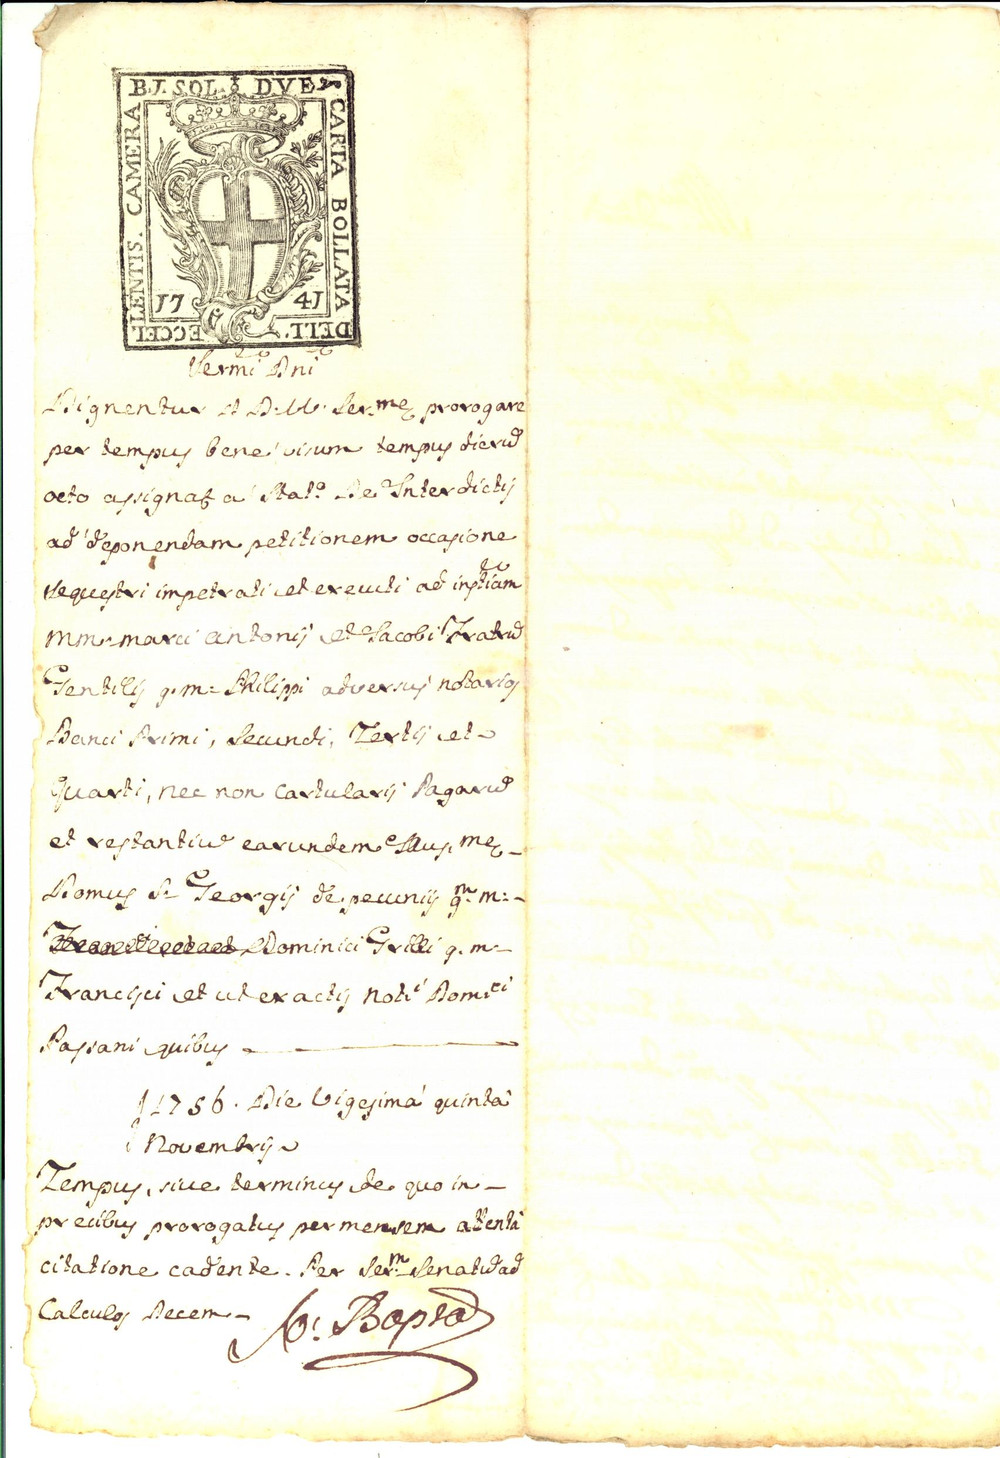 B.I. SOL. DVE
CARTA BOLLATA
DELL.
ECCEL
LENTIS. CAMERA
17 41
Sermi Dni
Dignentur D. VV. Ser.me prorogare
per tempus bene visum tempus dierũ
octo assignat. a Stat.o De Interdictis
ad deponendam petitionem occasione
sequestri impetrati et exequti ad instiam
MM. Marci Antonij et Jacobi Fratrũ
Gentilij q. m. Philippi adversus notarios
Banci Primi, Secundi, Tertij et
Quarti, nec non Cartularij Pagarũ
et restantiũ earundem Illus.me
Domus S. Georgij de pecunijs q.m m.
Dominici Grilli q. m.
Francisci et ut ex actis Noti Domci
Passani quibus
1756. Die Vigesima quinta
Novembris
Tempus, sive terminus de quo in
precibus prorogatus per mensem attenta
citatione cadente. Per Ser.m Senatũ ad
Calculos Decem